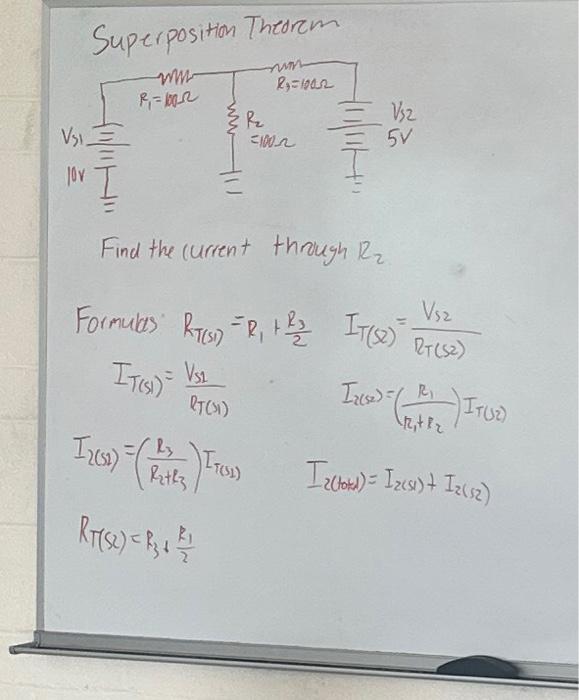 Superposition Theorem
R₁=100Ω
R₃=100Ω
R₂
=100Ω
VS1
10V
VS2
5V
Find the current through R₂
Formulas: R_T(S1) = R₁ + R₃/2
I_T(S2) = V_S2/R_T(S2)
I_T(S1) = V_S1/R_T(S1)
I_2(S2) = (R₁/(R₁+R₂)) I_T(S2)
I_2(S1) = (R₃/(R₂+R₃)) I_T(S1)
I_2(total) = I_2(S1) + I_2(S2)
R_T(S2) = R₃ + R₁/2